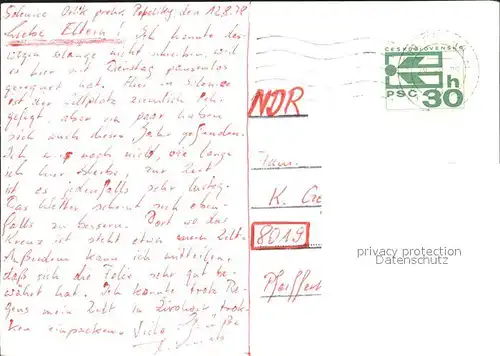 den 12.8.78
Liebe Eltern! Ich konnte des-
wegen solange nicht schreiben, weil
es hier seit Dienstag pausenlos
geregnet hat. Hier in
ist der Zeltplatz ziemlich leer-
gefegt, aber ein paar haben
sich auch dieses Jahr gefunden.
Ich weiß noch nicht, wie lange
ich hier bleibe, zur Zeit
ist es jedenfalls sehr lustig.
Das Wetter scheint sich eben-
falls zu bessern. Dort wo das
Kreuz ist steht etwa mein Zelt.
Außerdem kann ich mitteilen,
daß sich die Folie sehr gut be-
währt hat. Ich konnte trotz Re-
gens mein Zelt in trok-
ken einpacken. Viele Grüße
NDR
Fam.
K.
8019
ČESKOSLOVENSKO
h
PSČ 30
privacy protection
Datenschutz